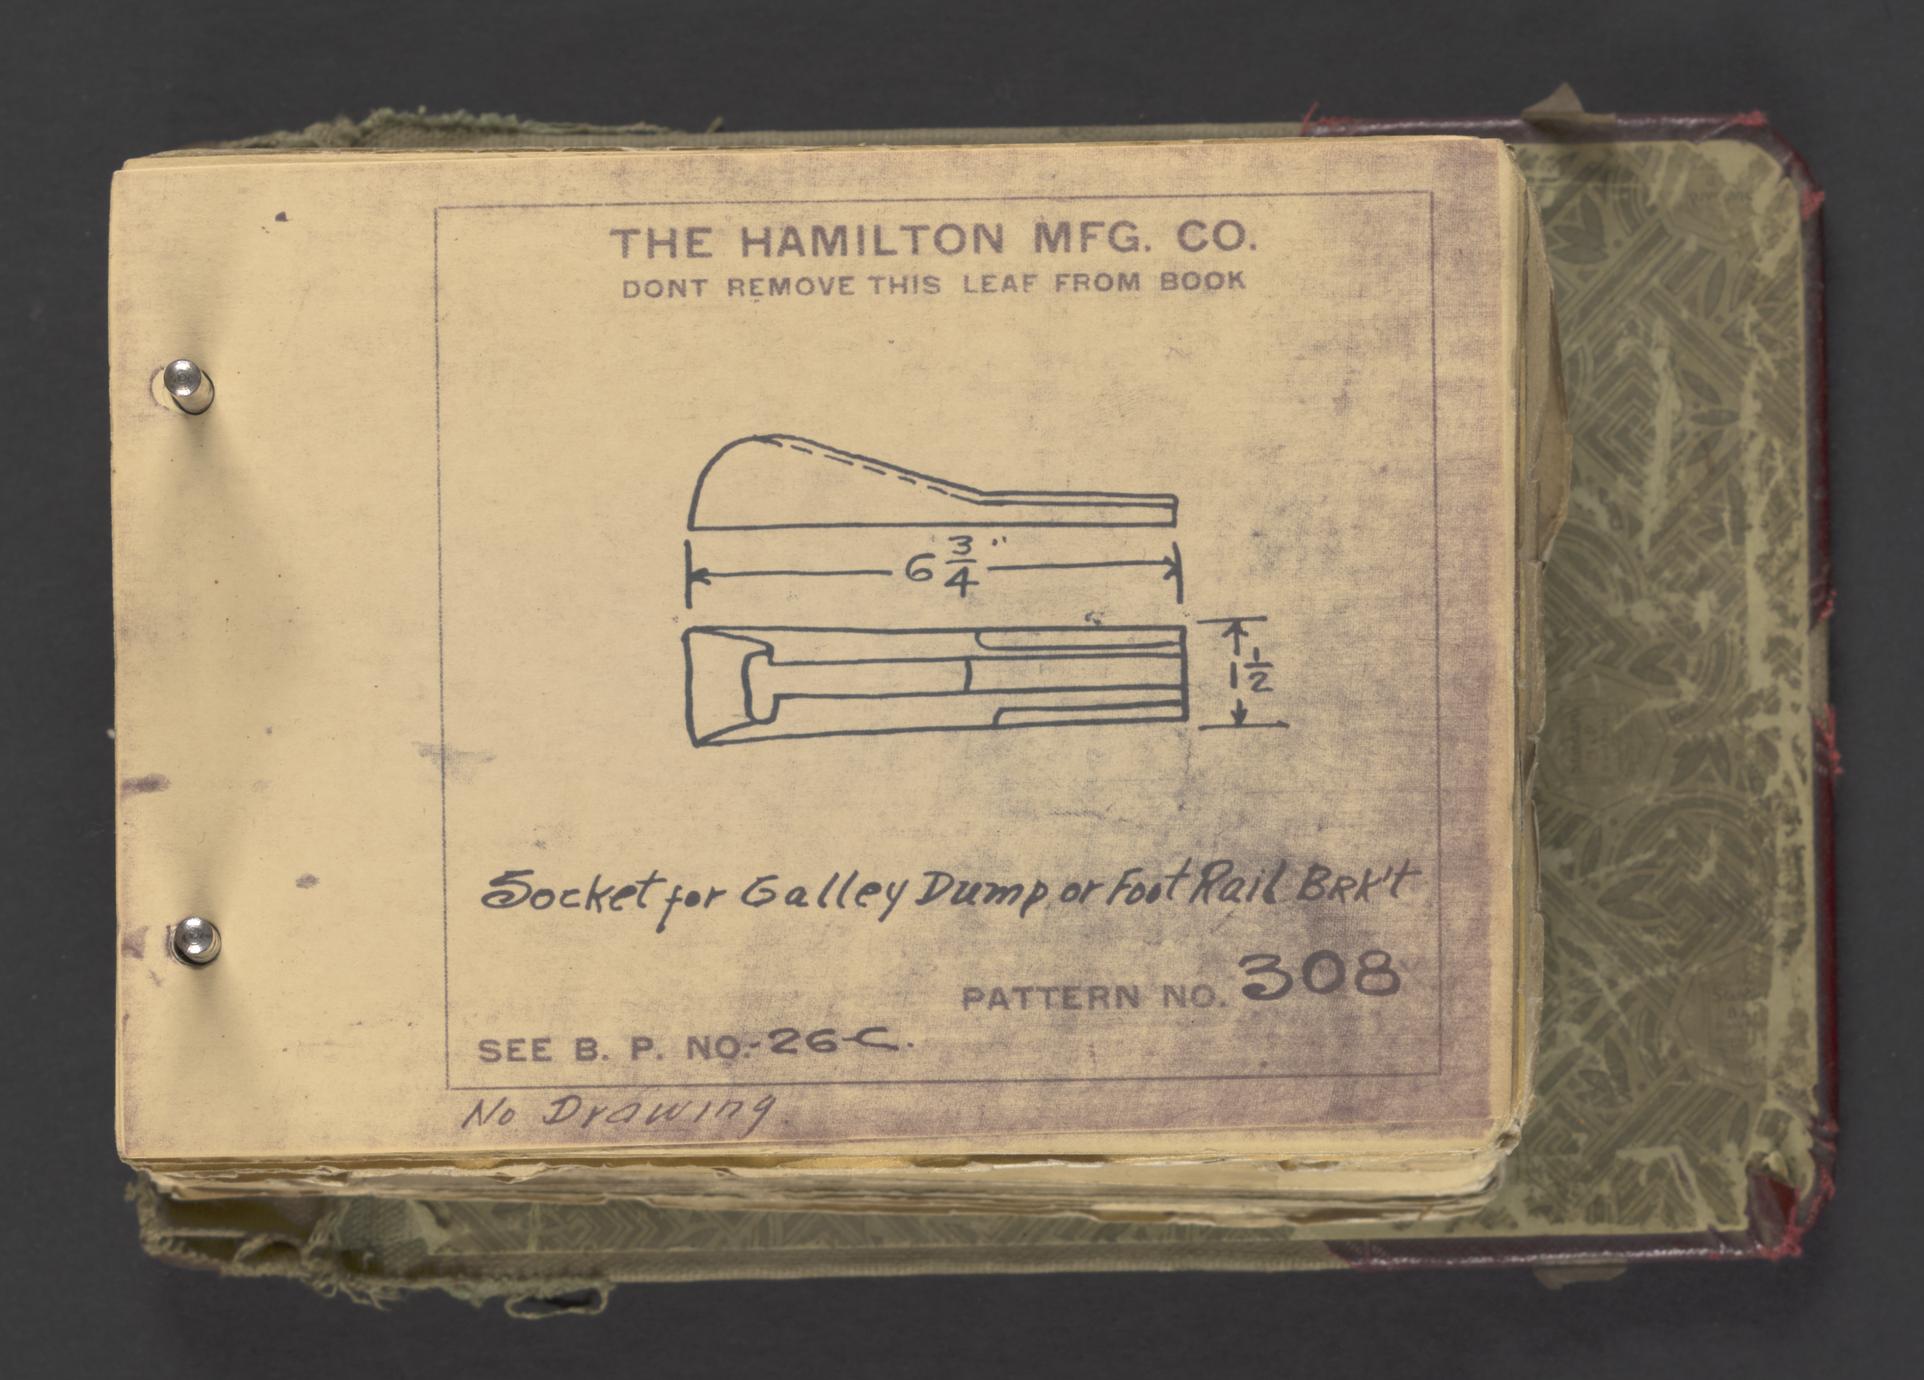 THE HAMILTON MFG. CO.
DONT REMOVE THIS LEAF FROM BOOK
6 3/4"
1 1/2
Socket for Galley Dump or Foot Rail BRK't
PATTERN NO. 308
SEE B. P. NO.-26-C.
No Drawing.